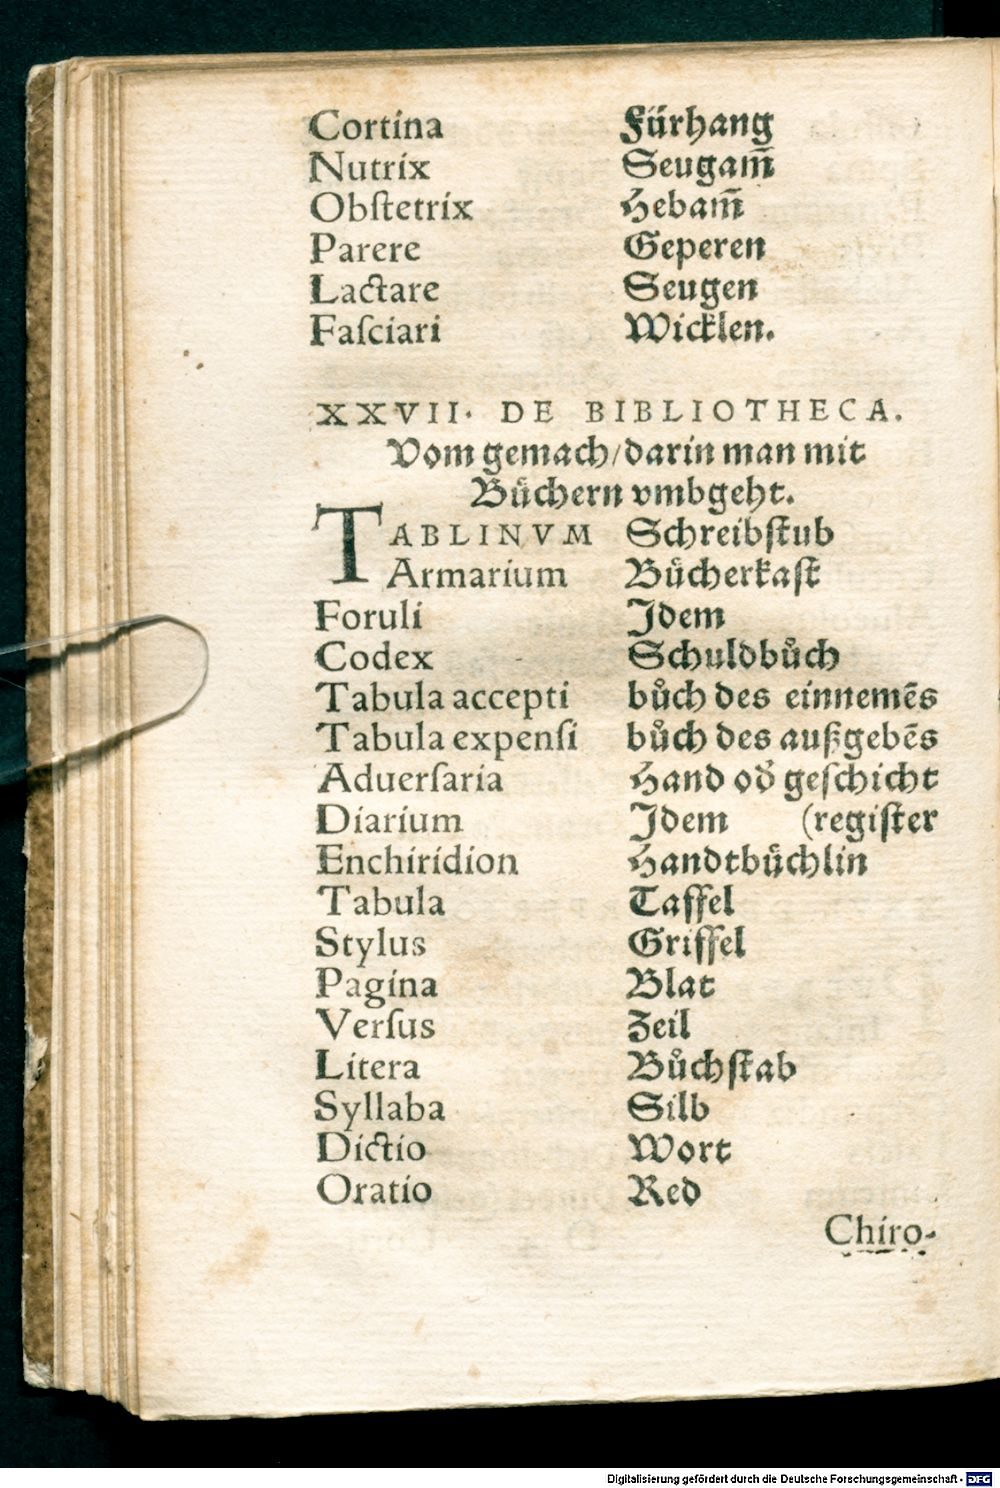 Cortina Fürhang
Nutrix Seugam̄
Obſtetrix Hebam̄
Parere Geperen
Lactare Seugen
Faſciari Wicklen.
XXVII. DE BIBLIOTHECA.
Vom gemach/darin man mit
Buͤchern vmbgeht.
TABLINVM Schreibſtub
Armarium Buͤcherkaſt
Foruli Idem
Codex Schuldbuͦch
Tabula accepti buͦch des einnemēs
Tabula expenſi buͦch des außgebēs
Aduerſaria Hand od̓ geſchicht
Diarium Idem (regiſter
Enchiridion Handtbuͤchlin
Tabula Taffel
Stylus Griffel
Pagina Blat
Verſus Zeil
Litera Buͦchſtab
Syllaba Silb
Dictio Wort
Oratio Red
Chiro-
Digitalisierung gefördert durch die Deutsche Forschungsgemeinschaft - DFG